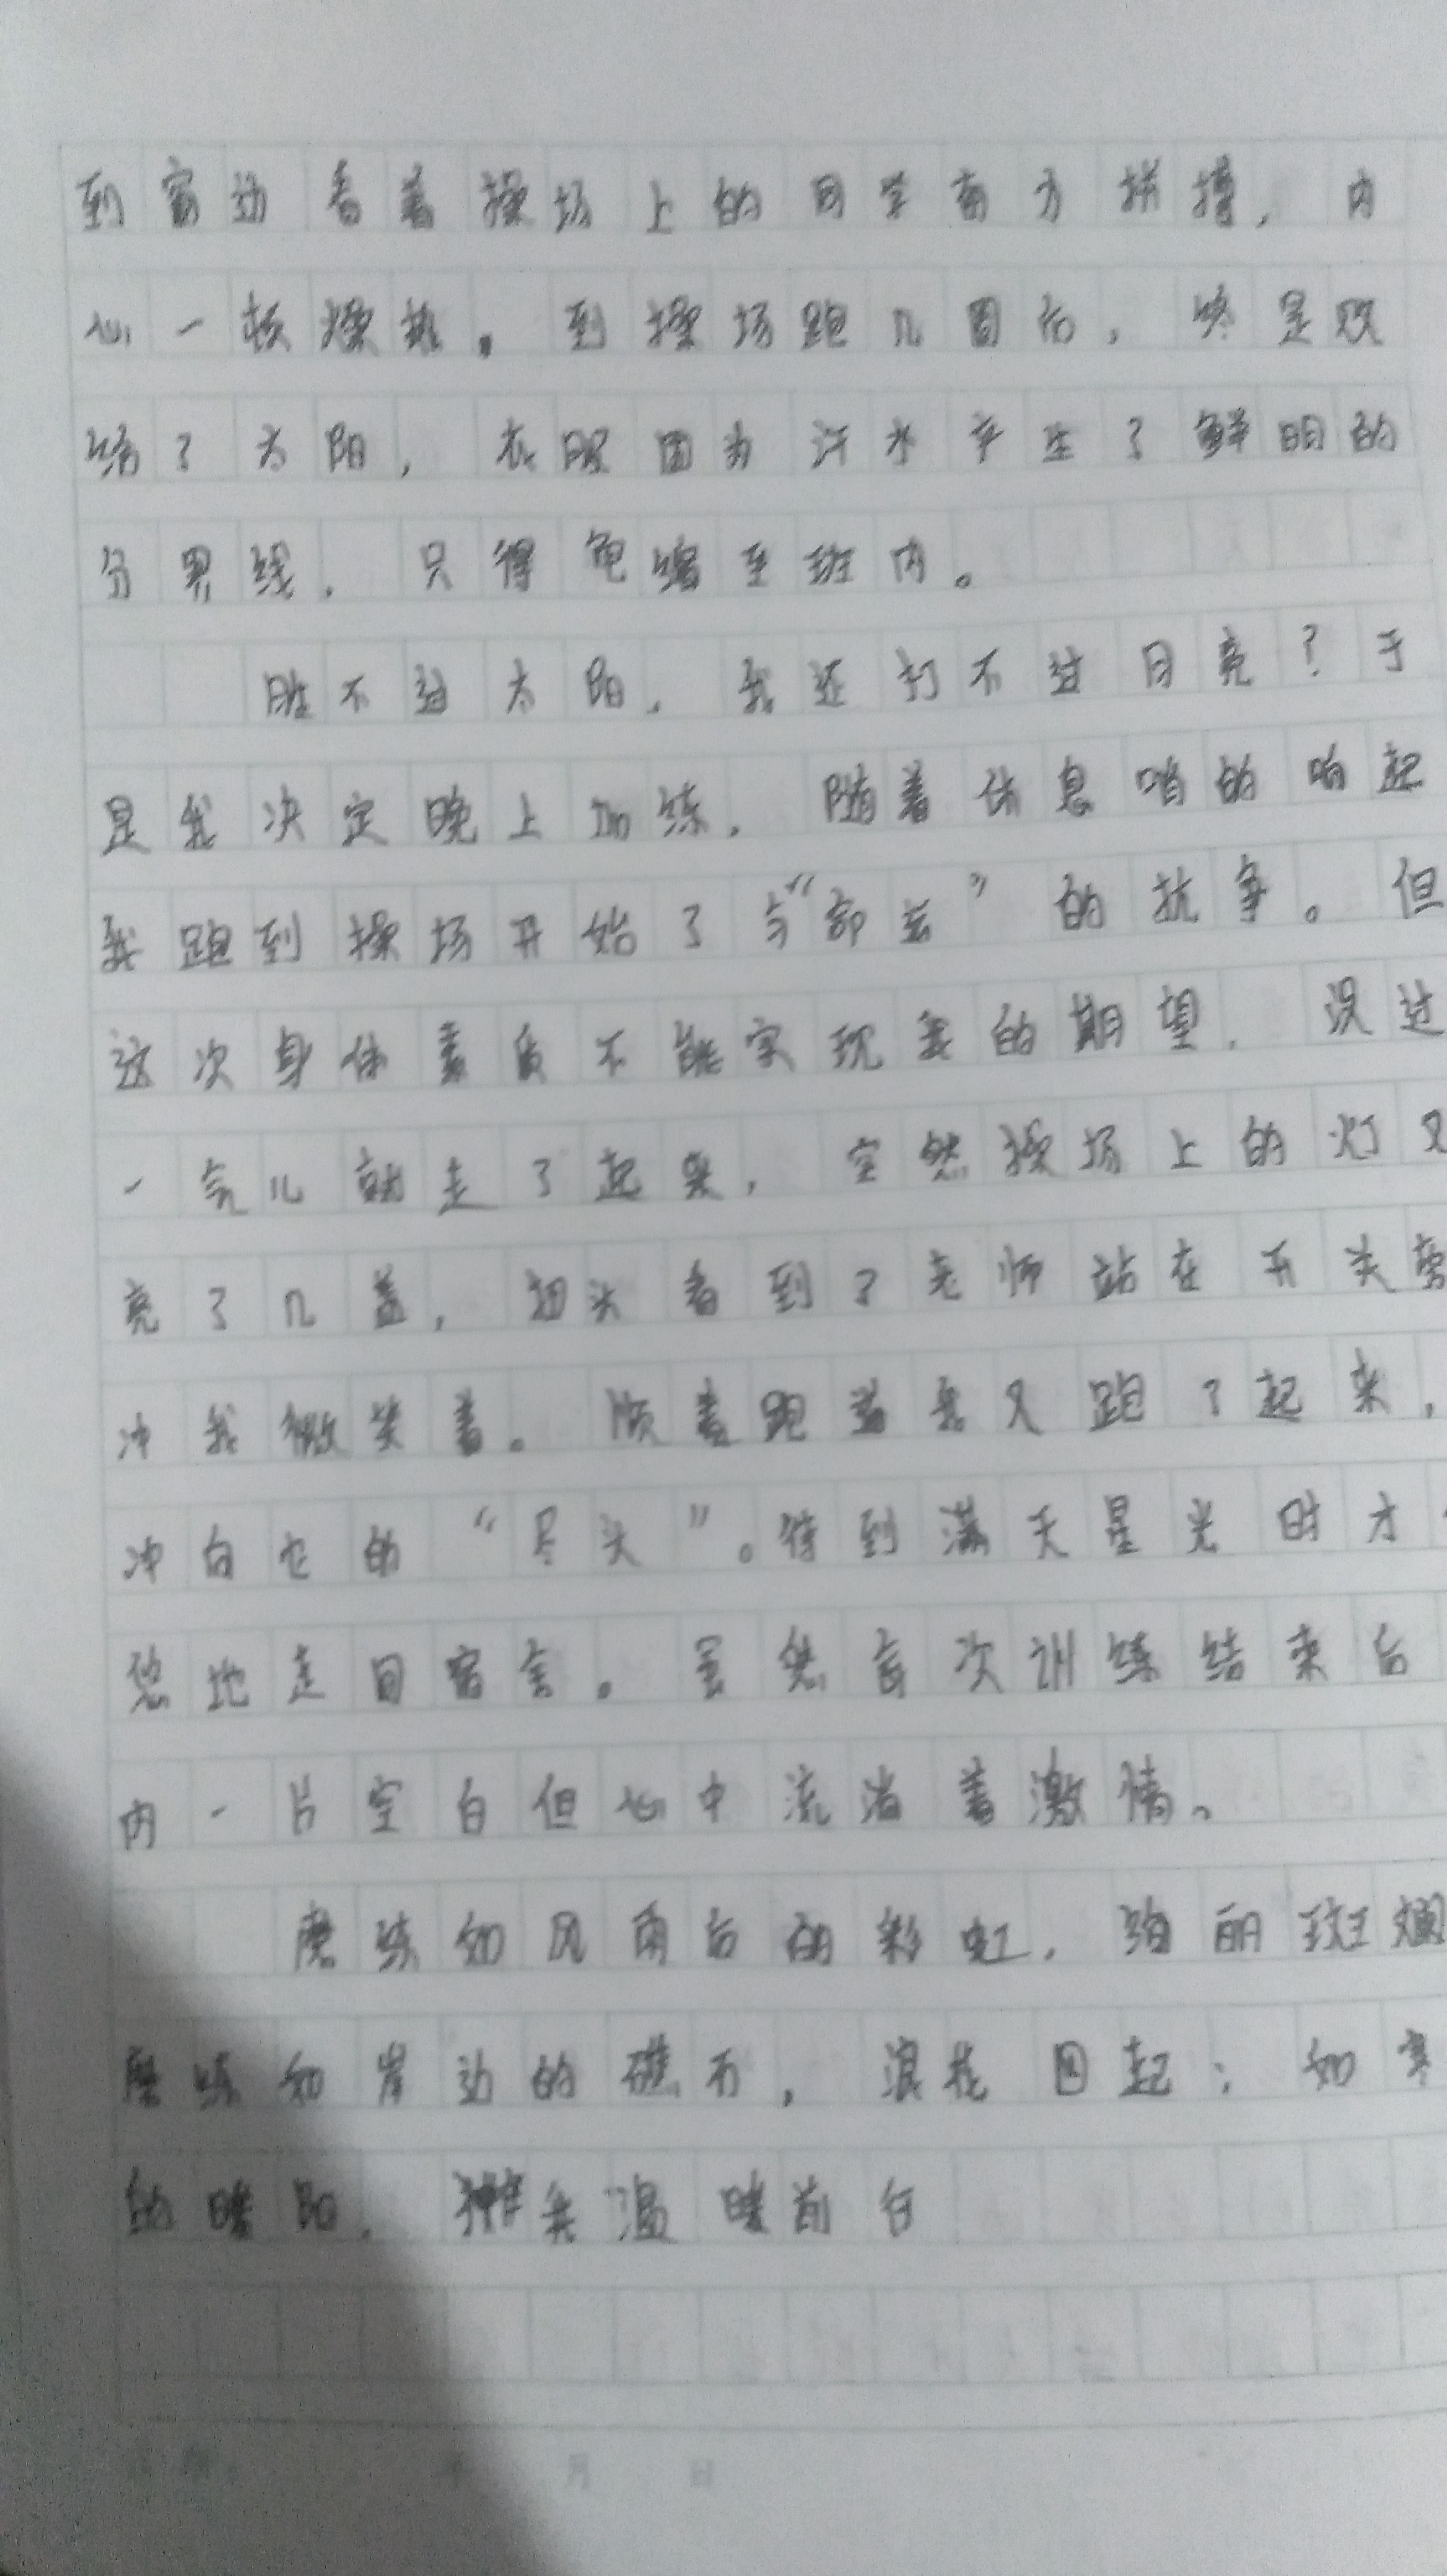 到窗边看着操场上的同学奋力拼搏，内
心一标燥热。到操场跑几圈后，终是败
给了太阳，衣服因为汗水产生了鲜明的
分界线，只得龟缩至班内。
胜不过太阳，我还打不过月亮？于
是我决定晚上加练，随着休息哨的响起
我跑到操场开始了与“ ”的抗争。但
这次身体素质不能实现我的期望，没过
一气儿就走了起来，突然操场上的灯又
亮了几盏，扭头看到了老师站在开关旁
冲我微笑着。顺着跑道我又跑了起来，
冲向它的“尽头”。待到满天星光时才
悠地走回宿舍。虽然每次训练结束后
内一片空白但心中流淌着激情。
磨练如风雨后的彩虹，绚丽斑斓
磨练如岸边的礁石，浪花 起；如寒
的暖阳， 温暖前
年 月 日